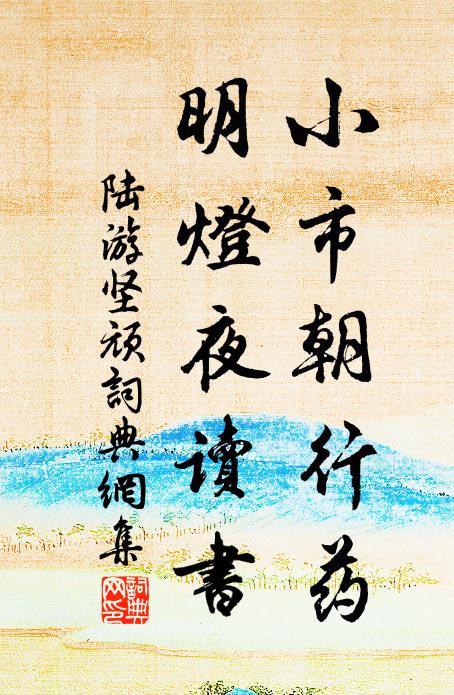 小市朝行药
明燈夜讀書
陆游坚顽詞典網集
詞典